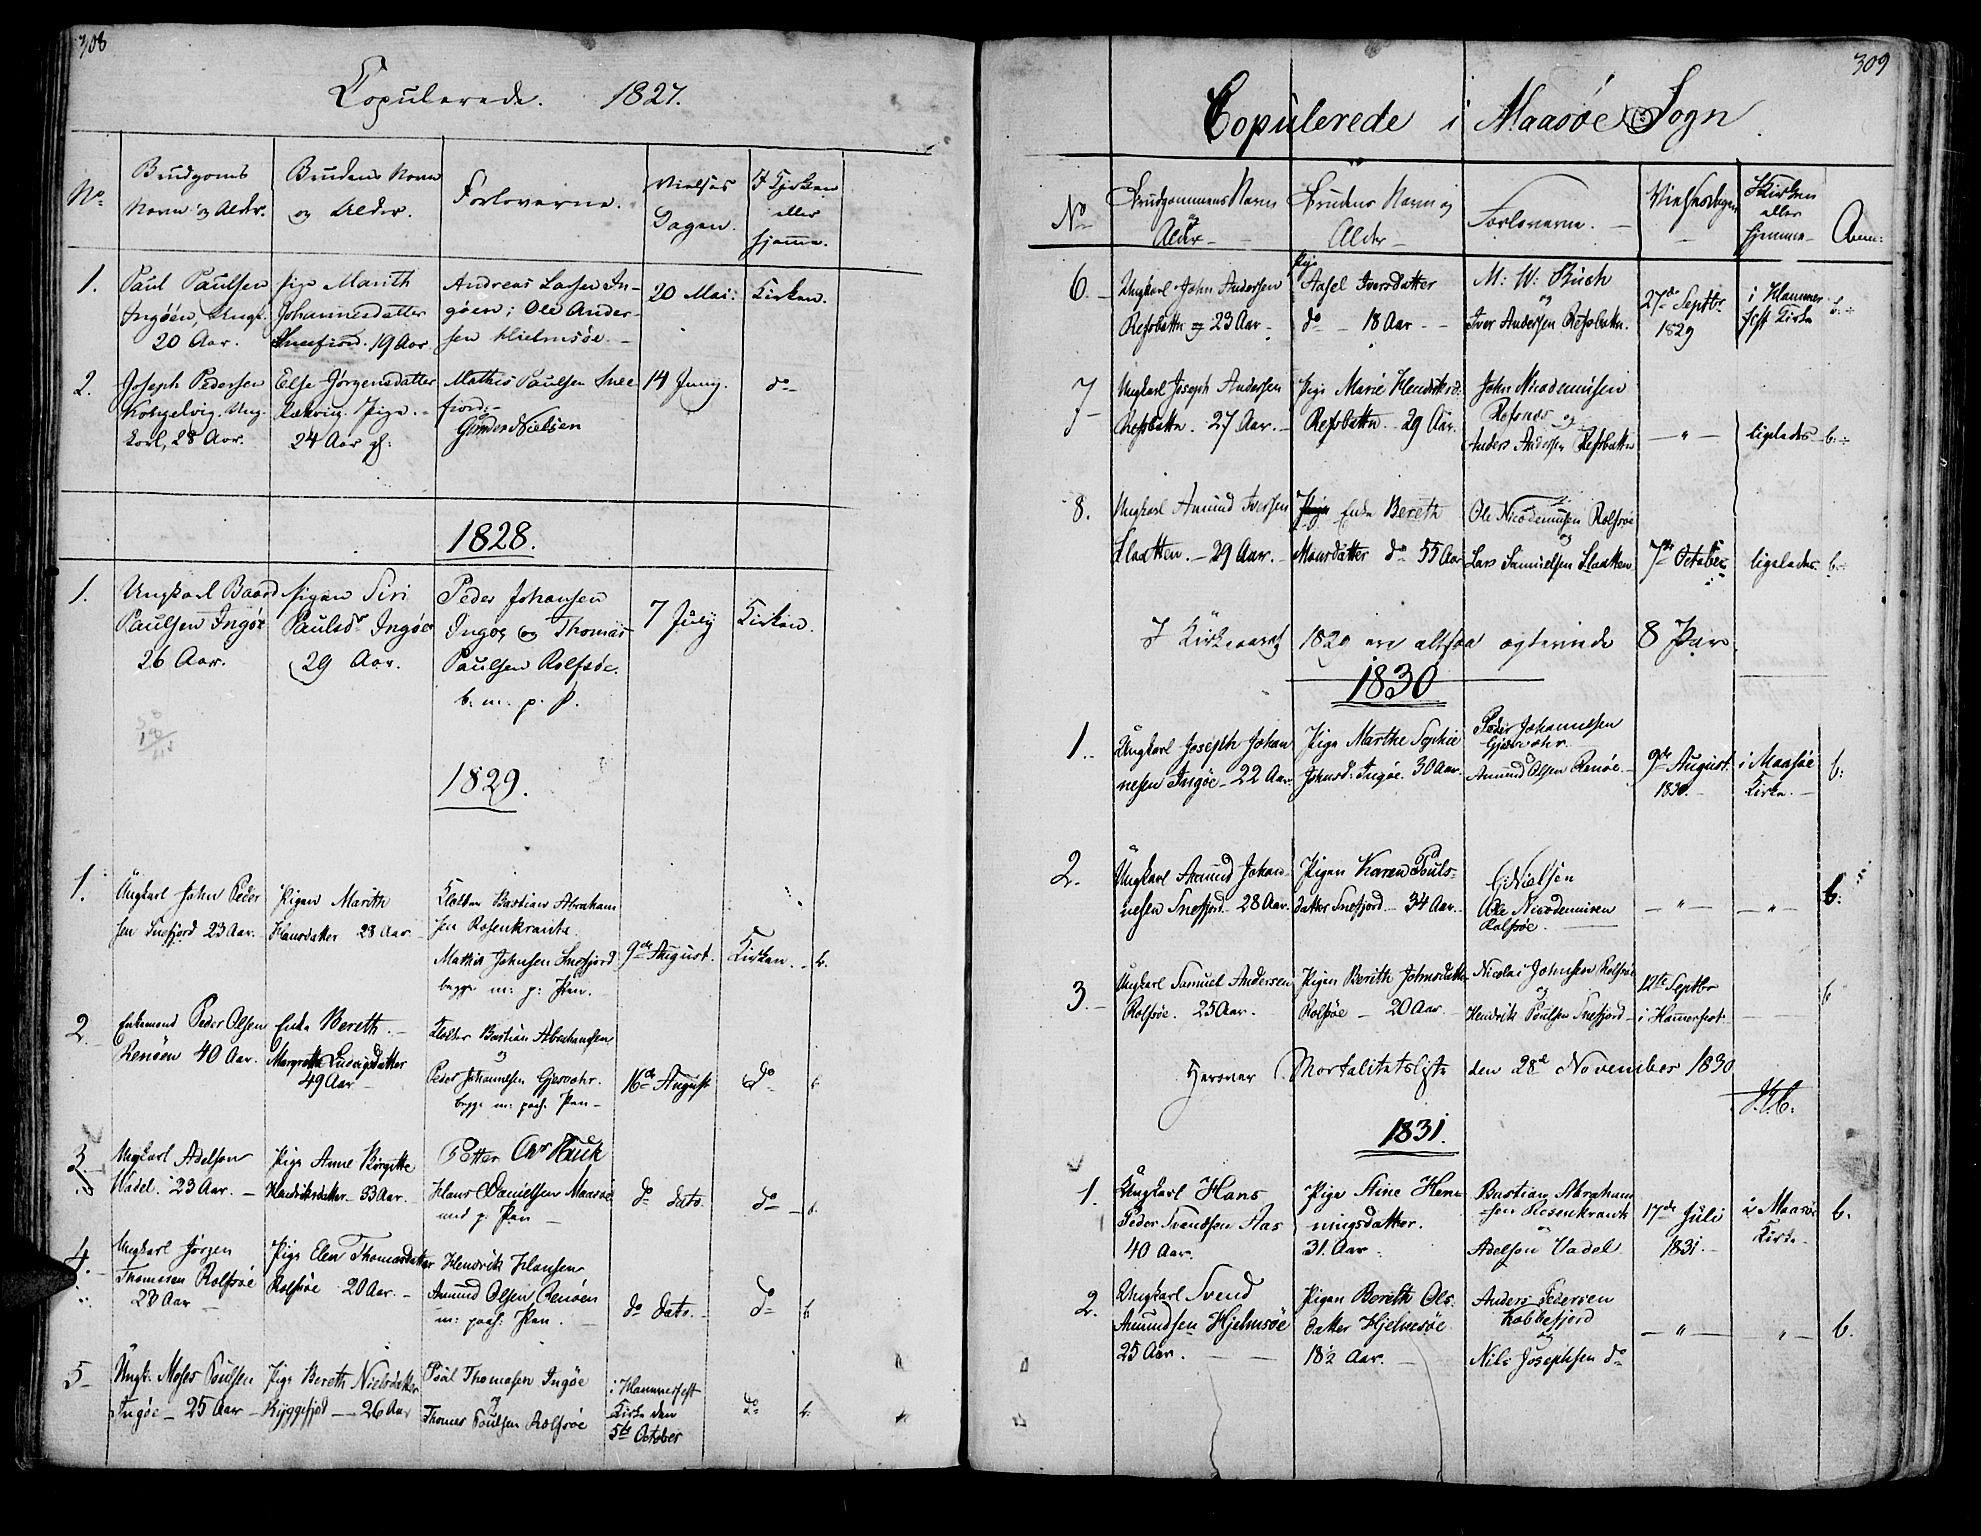 308
Copulerede. 1827.
No
Brudgoms Navn og Alder.
Brudens Navn og Alder.
Forloverne.
Vielses Dagen.
I Kirken eller hjemme.
1.
Paul Paulsen
Ingöen, Ungk.
20 Aar.
Pige Marith
Johannesdatter
Sneefiord. 19 Aar.
Andreas Larsen In-
göen; Ole Ander-
sen Hielmsöe.
20 Mai:
Kirken.
2.
Joseph Pedersen
Ung-
karl, 28 Aar.
Else Jörgensdatter
Pige.
24 Aar
Mathis Paulsen Snee
fiord.
Gunder Nielsen
14 Juny.
do
1828.
1.
Ungkarl Baard
Paulsen Ingöe
26 Aar.
Pigen Siri
Paulsdr Ingöe
29 Aar.
Peder Johansen
Ingöe og Thomas
Paulsen Rolfsöe.
b. m. p. P.
7 July
Kirken.
1829.
1.
Ungkarl John Peder
sen Snefjord 23 Aar.
Pigen Marith
Hansdatter 28 Aar
Klokker Bastian Abraham
sen Rosenkrantz.
Mathis Johnsen Snefjord
begge m: p: Pen.
9de August.
Kirken.
b.
2
Enkemand Peder Olsen
Renöen 40 Aar.
Enke Bereth
Margrethe Ludvigsdatter
49 Aar
Klokker Bastian Abrahamsen
og
Peder Johannesen Gjesvær.
begge m: paah: Pen
16de August
do
b.
3.
Ungkarl Adelson
Wadel. 23 Aar.
Pige Anne Birgitte
Hendriksdatter 33 Aar.
Petter Chr Hauk
Hans Danielsen Maasöe
med p. Pen
do dato.
do
b.
4.
Ungkarl Jörgen
Thomesen Rolfsöe
28 Aar
Pige Elen Thomasdatter
Rolfsöe 20 Aar.
Hendrik Hansen
Amund Olsen Renöen
m: paah: Pen.
do dato.
do
b.
5
Ungk. Moses Poulsen
Ingöe 25 Aar
Pige Bereth Nielsdatter
Ryggefjod 26 Aar
Poul Thomasen Ingöe
og
Thomes Poulsen Rolfsöe
i Hammerfest
Kirke den
5te October
do
b.
309
Copulerede i Maasöe Sogn
No
Brudgommens Navn og Alder
Brudens Navn og Alder
Forloverne.
Vielsesdagen
I Kirken eller hjemme
Anm:
6.
Ungkarl John Andersen
Refsbotn 23 Aar
Pige
Aasel Iversdatter
do 18 Aar
M: W: Buch
og
Iver Andersen Refsbotn.
27de Septbr.
1829
i Hammer
fest Kirke
b.
7
Ungkarl Joseph Andersen
Refsbotn. 27 Aar.
Pige Marie Hendriksd.
Refsbotn. 29 Aar.
John Nicodemusen
Refsnes og
Anders Andersen Refsbotn
"
ligeledes
b.
8.
Ungkarl Amund Iversen
Slaatten. 29 Aar.
Enke Bereth
Monsdatter do 55 Aar
Ole Nicodemusen Rolfsöe
og
Lars Samuelsen Slaatten
7de October
ligeledes
b.
I Kirkeaaret 1829 ere altsaa egteviede 8 Par
1830
1.
Ungkarl Joseph Johan
nesen Ingöe 22 Aar
Pige Marthe Sophie
Johnsd: Ingöe. 30 Aar.
Peder Johannesen
Gjesvær.
Amund Olsen Renöe.
9de August
1830.
i Maasöe
Kirke.
b:
2.
Ungkarl Amund Johan
nesen Snefjord 28 Aar.
Pigen Karen Pouls-
datter Snefjord 34 Aar.
G Nielsen
Ole Nicodemusen
Rolfsöe.
"
"
b.
3.
Ungkarl Samuel Andersen
Rolfsöe. 25 Aar.
Pigen Berith Johnsdatter
Rolfsöe 20 Aar
Nicolai Johnsen Rolfsöe
og
Hendrik Poulsen Snefjord
12te Septbr
i Hamerfest
b
Herover Mortalitetsliste den 28de November 1830
1831.
1.
Ungkarl Hans
Peder Svendsen Aas
40 Aar.
Pige Stine Hen-
ningsdatter.
31 Aar
Bastian Abraham
sen Rosenkrantz
og
Adelson Vadel
17de Juli
1831.
i Maasöe
Kirke
b.
2.
Ungkarl Svend
Amundsen Hjelmsöe
25 Aar.
Pigen Bereth Ols
datter Hjelmsöe
18½ Aar.
Anders Pedersen
Kobbefjord
og
Nils Josephsen do
"
"
b.